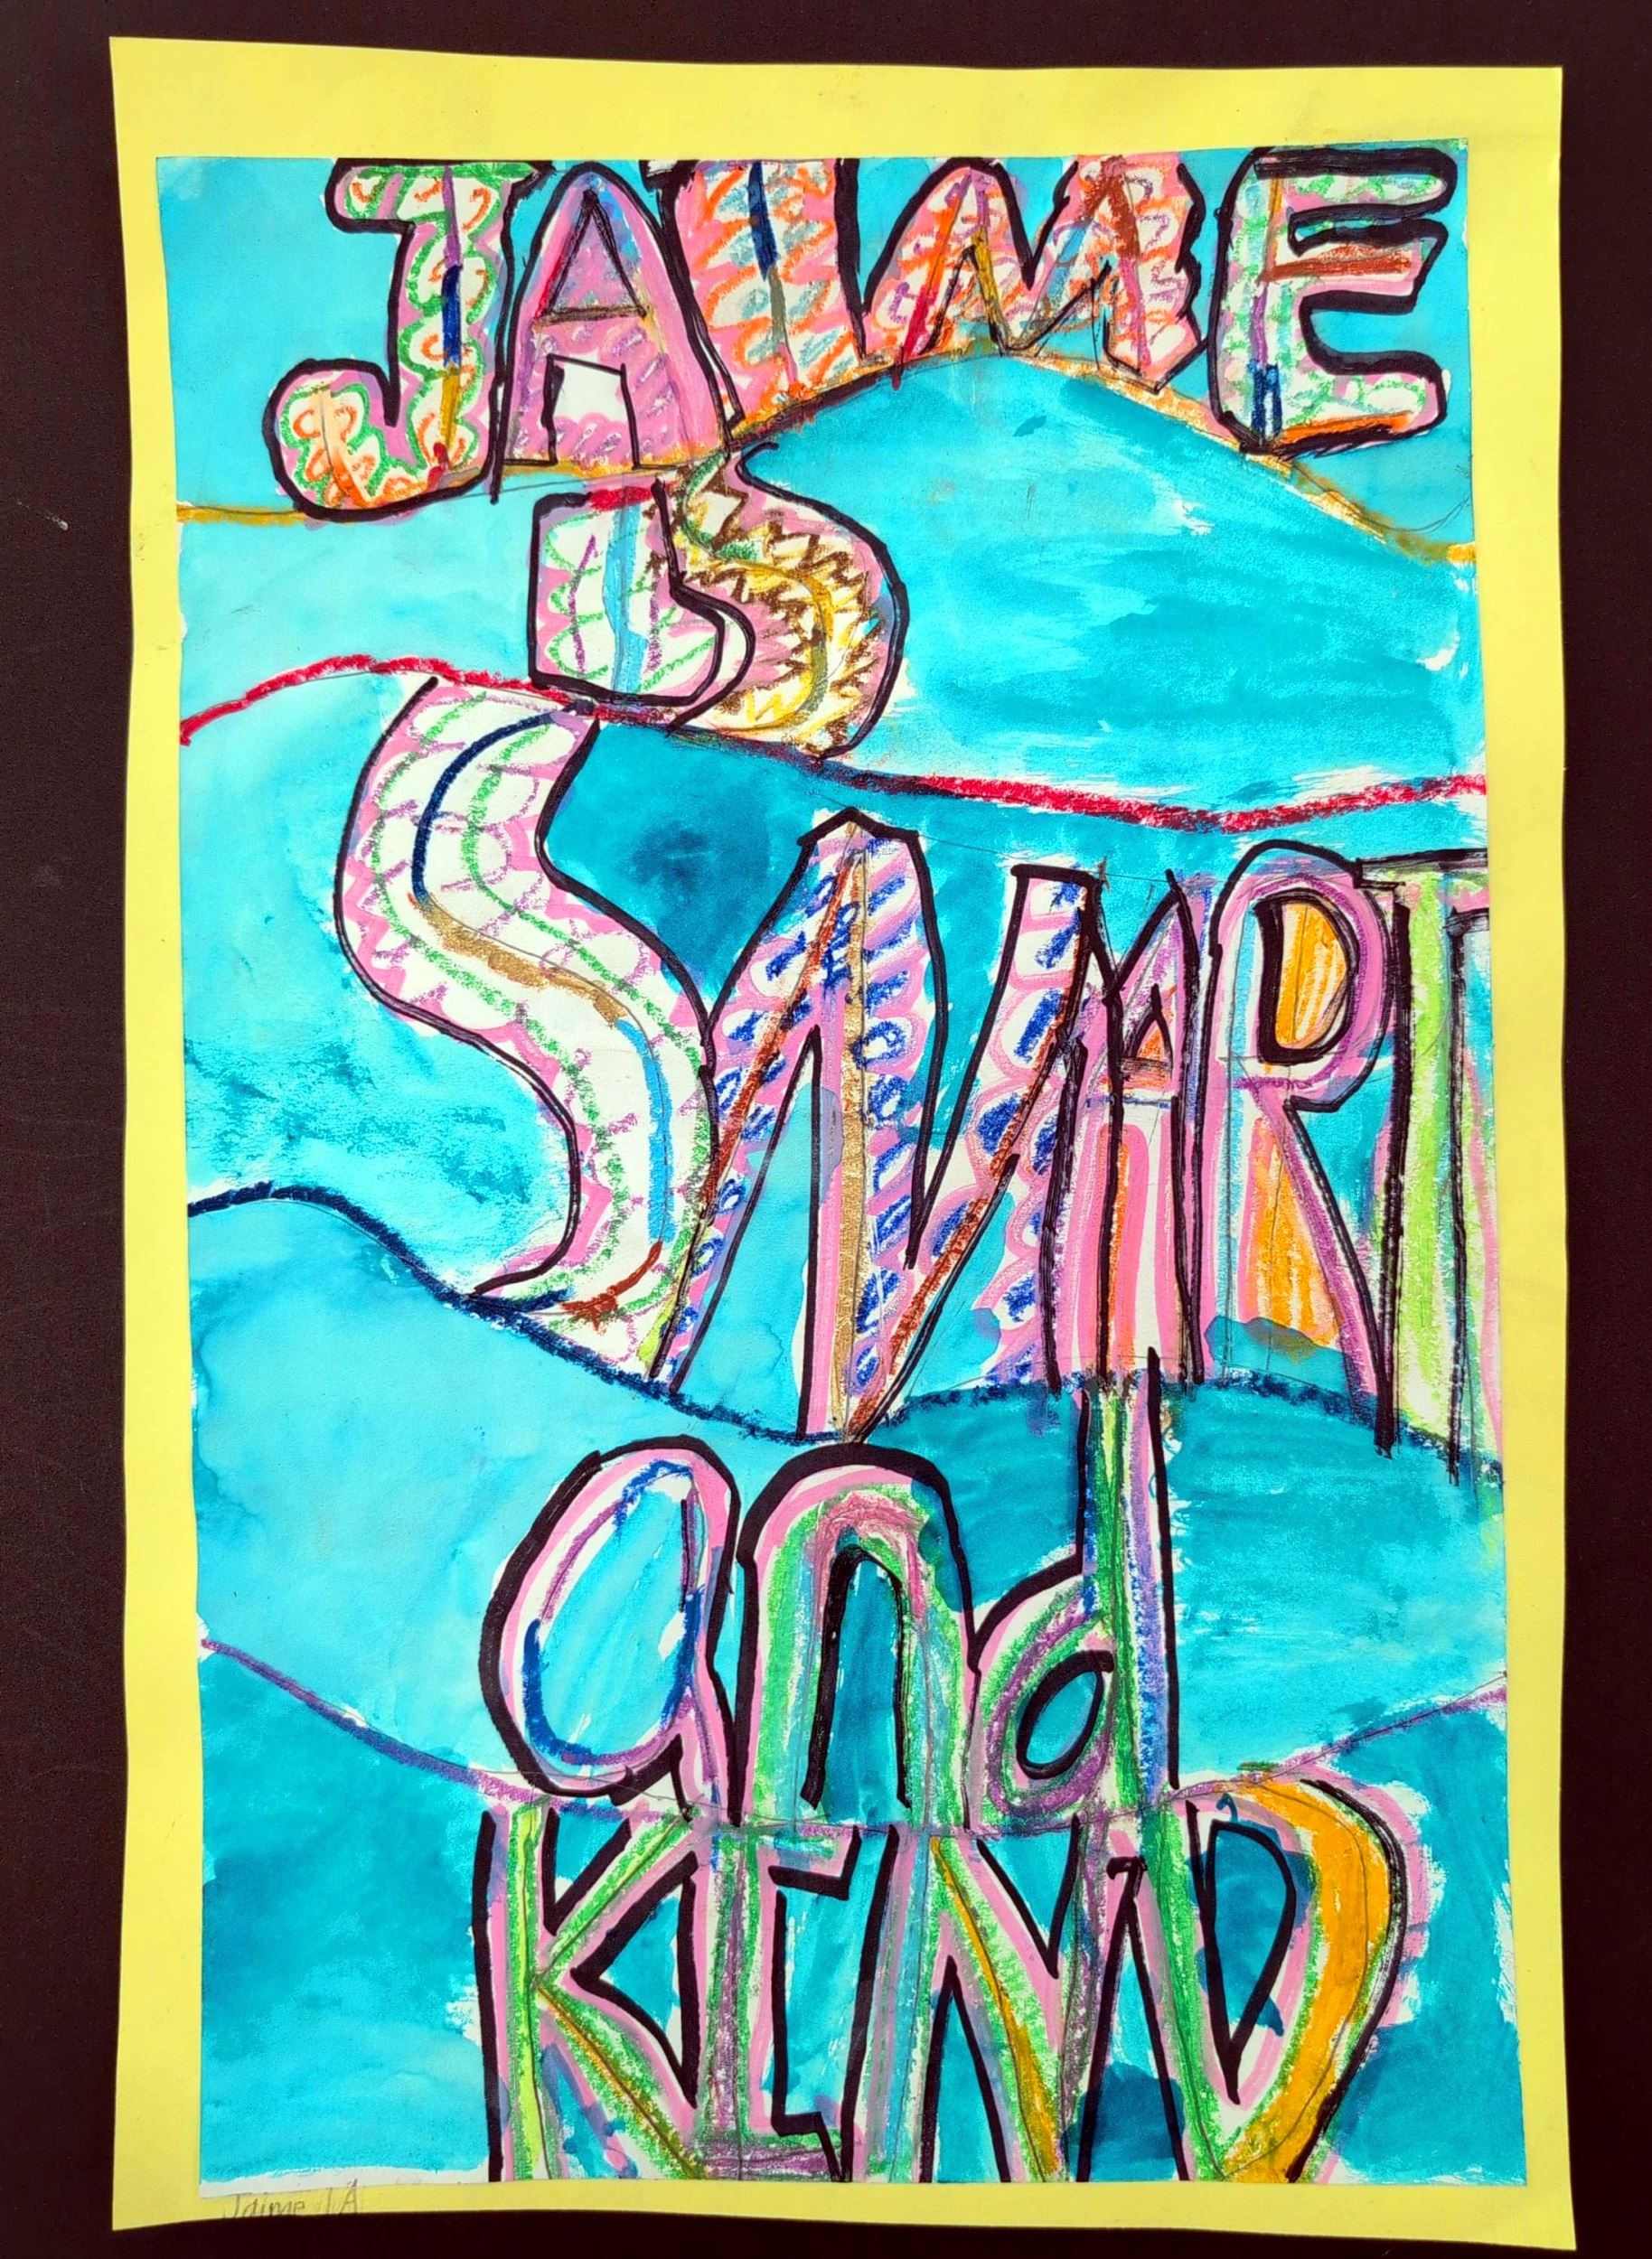 JAIME
IS
SMART
and
KIND
Jaime 1A